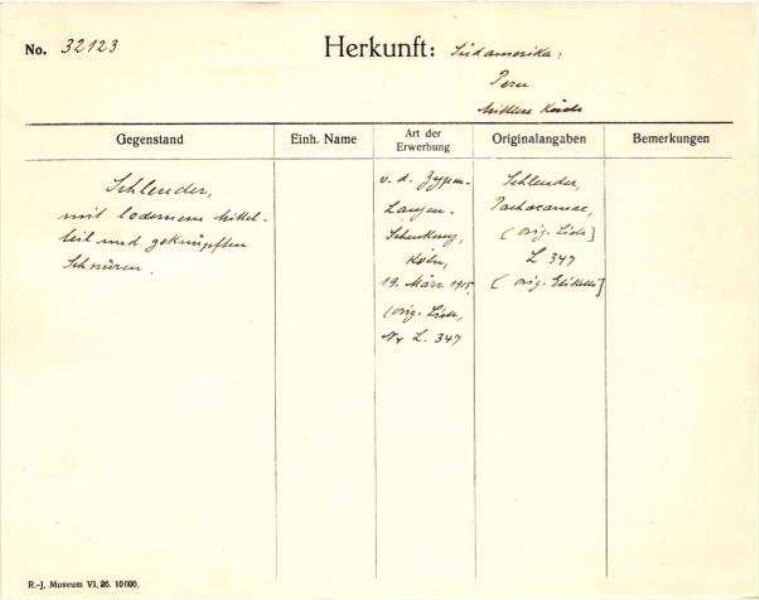 No. 32123
Herkunft: Südamerika:
Peru
Mittlere Küste
Gegenstand
Einh. Name
Art der Erwerbung
Originalangaben
Bemerkungen
Schleuder,
mit ledernem Mittel-
teil und geknüpften
Schnüren.
v. d. Zypen-
Langen-
Schenkung,
Köln,
19. März 1915
(orig. Liste,
Nr L. 347
Schleuder,
Pachacamac,
(orig. Liste]
L 347
[orig. Etikette]
R.-J. Museum VI. 26. 10000.